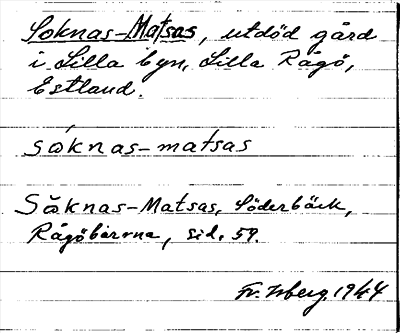 Soknas-Matsas, utdöd gård
i Lilla byn, Lilla Rågö,
Estland.
sóknas-matsas
Såknas-Matsas, Söderbäck,
Rågöbarna, sid. 59.
Fr. Isberg 1944